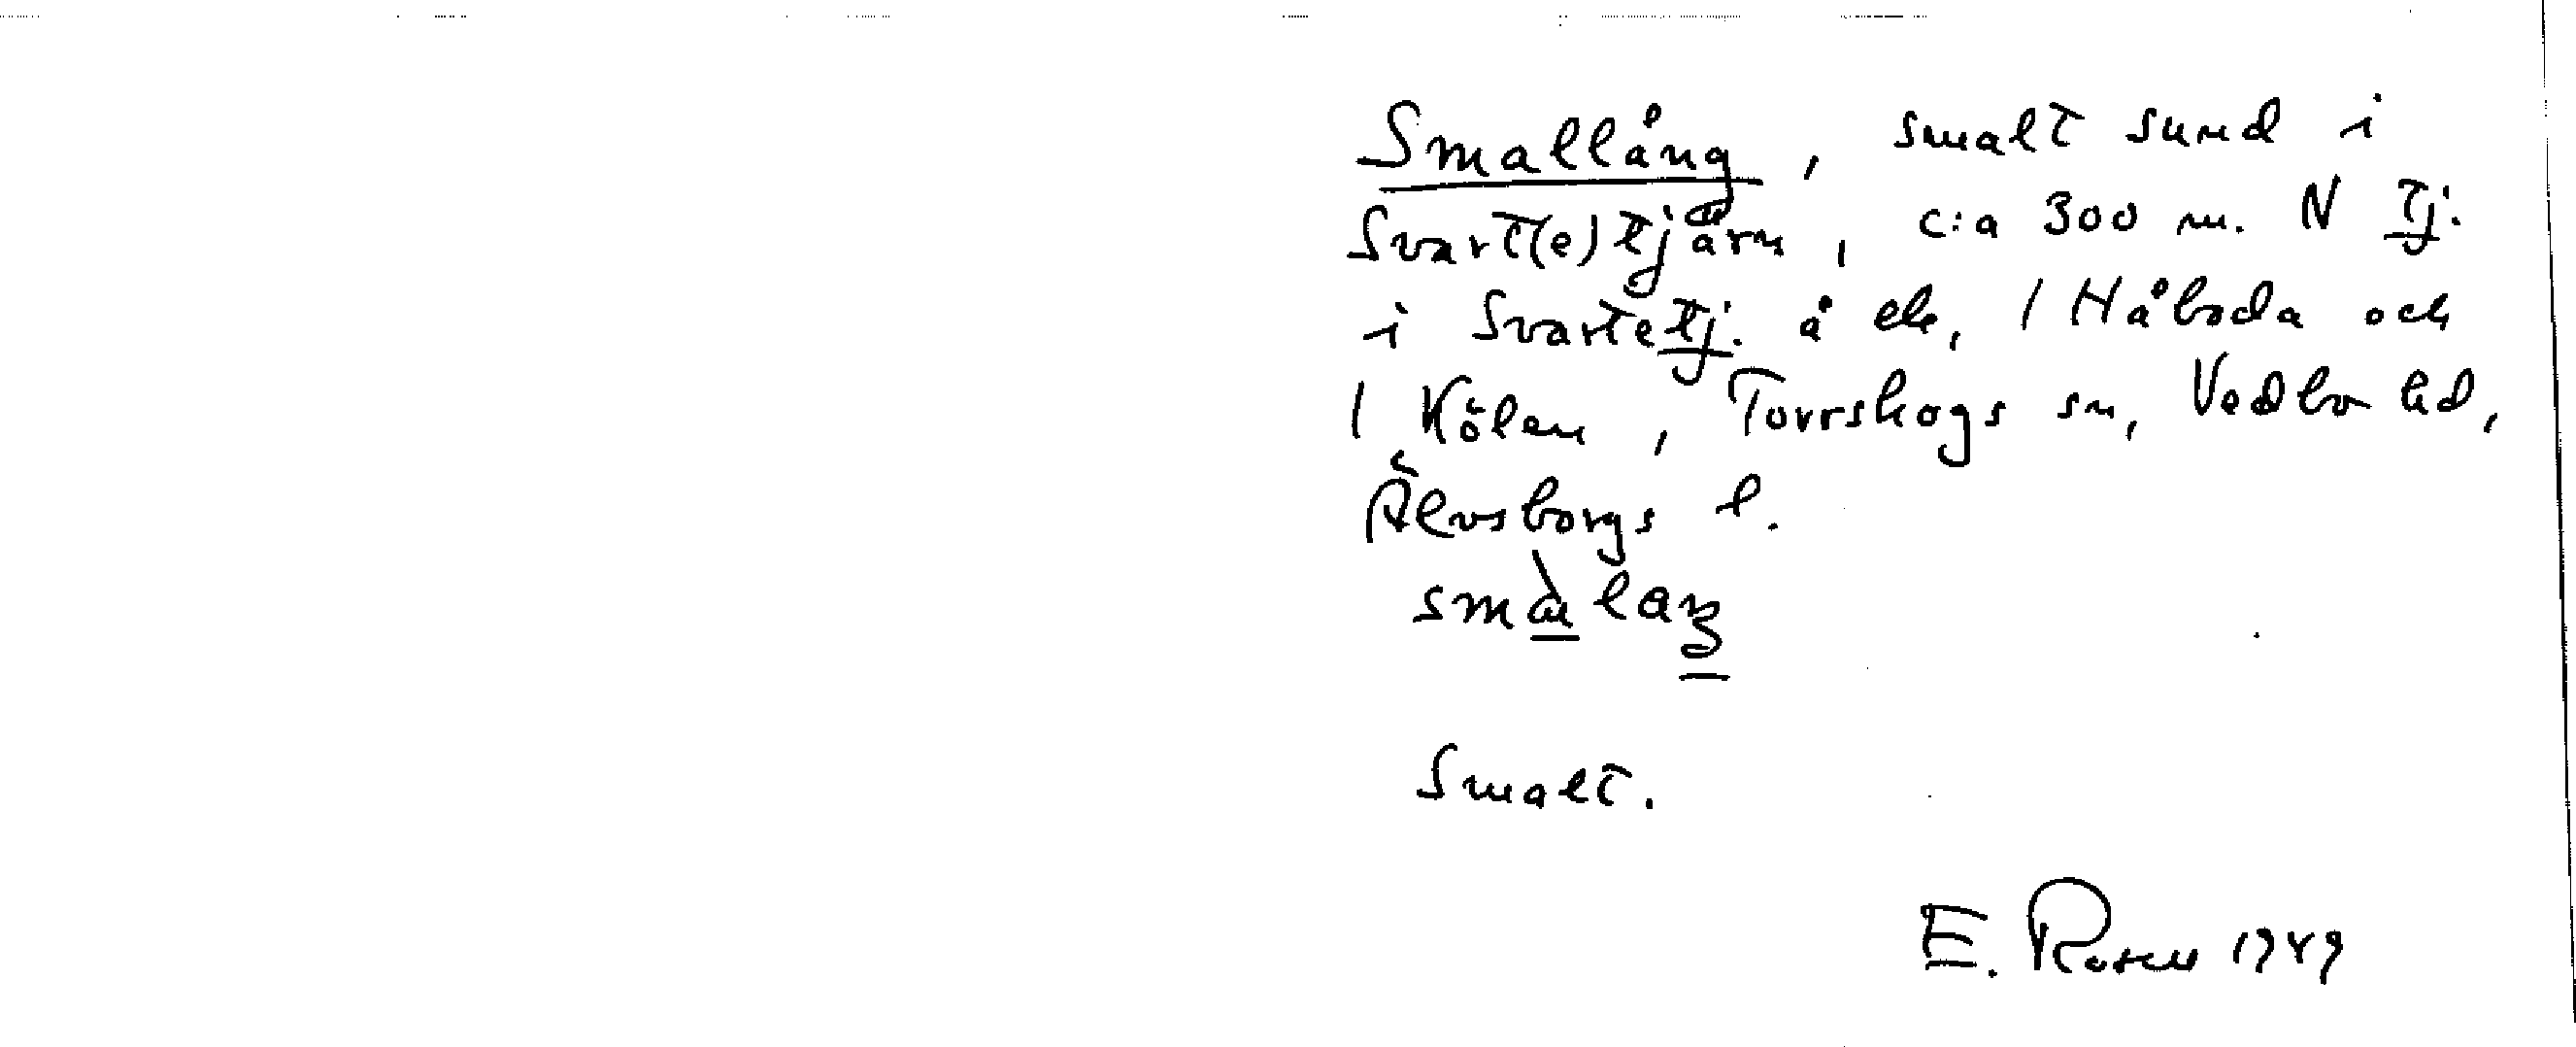 Smallång, smalt sund i
Svart(e)tjärn, c:a 300 m. N Tj.
i Svartetj. å ek, 1 Håboda och
1 Kölen, Torrskogs sn, Vedbo hd,
Älvsborgs l.
Smalt.
E. Rosell 1949